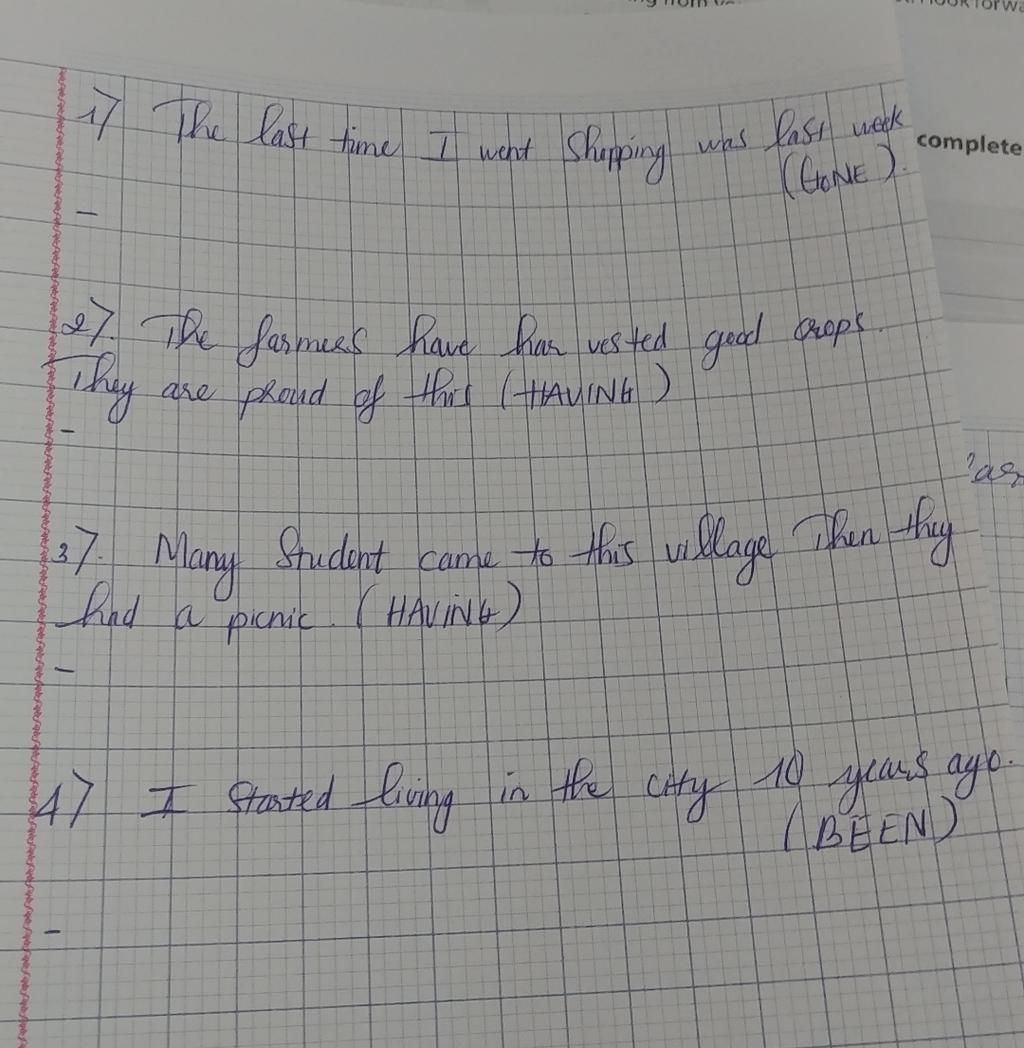 complete
1) The last time I went Shopping was last week
(GONE).
-
2). The farmers have harvested good crops.
They are proud of this (HAVING)
-
3). Many Student came to this village Then they
had a picnic. (HAVING)
-
4) I Started living in the city 10 years ago.
(BEEN)
-